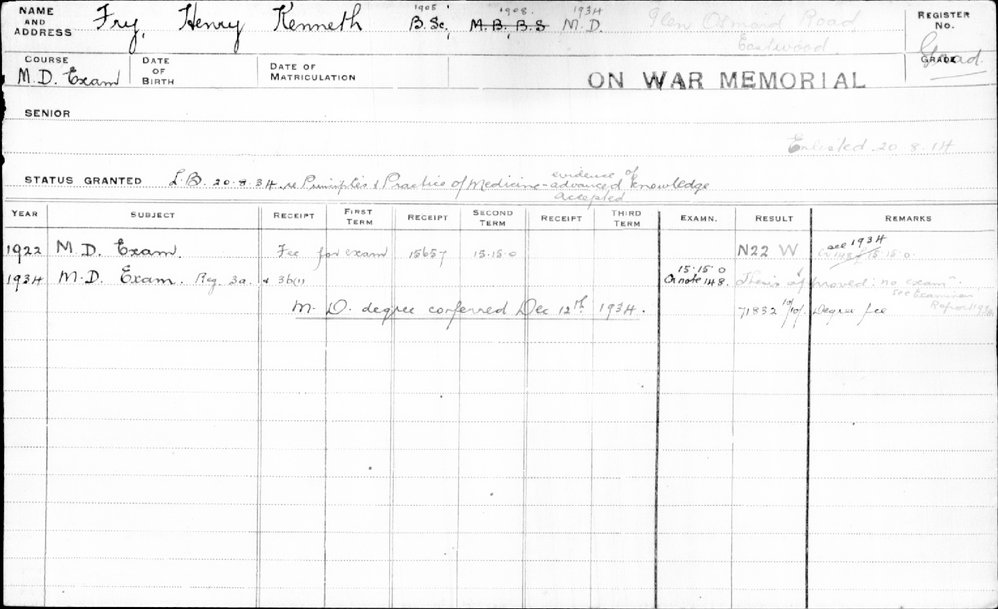 NAME AND ADDRESS Fry, Henry Kenneth 1905 B.Sc, 1908 M.B., B.S 1934 M.D. Glen Osmond Road Eastwood REGISTER No.
COURSE M.D. Exam DATE OF BIRTH DATE OF MATRICULATION ON WAR MEMORIAL GRADE Grad.
SENIOR
Enlisted 20.8.14
STATUS GRANTED L.B. 20.8.34 re Principles & Practice of Medicine - evidence of advanced knowledge accepted
YEAR SUBJECT RECEIPT FIRST TERM RECEIPT SECOND TERM RECEIPT THIRD TERM EXAMN. RESULT REMARKS
1922 M.D. Exam. Fee for exam 15657 15.15.0 N22 W see 1934 Cr 148 f 15.15.0.
1934 M.D. Exam. Reg. 3a. & 3b(1) 15.15.0 Cr note 148. Thesis approved: no exam"
see Examiners Report
M. D. degree conferred Dec 12th 1934. 71832 10/10/ Degree fee